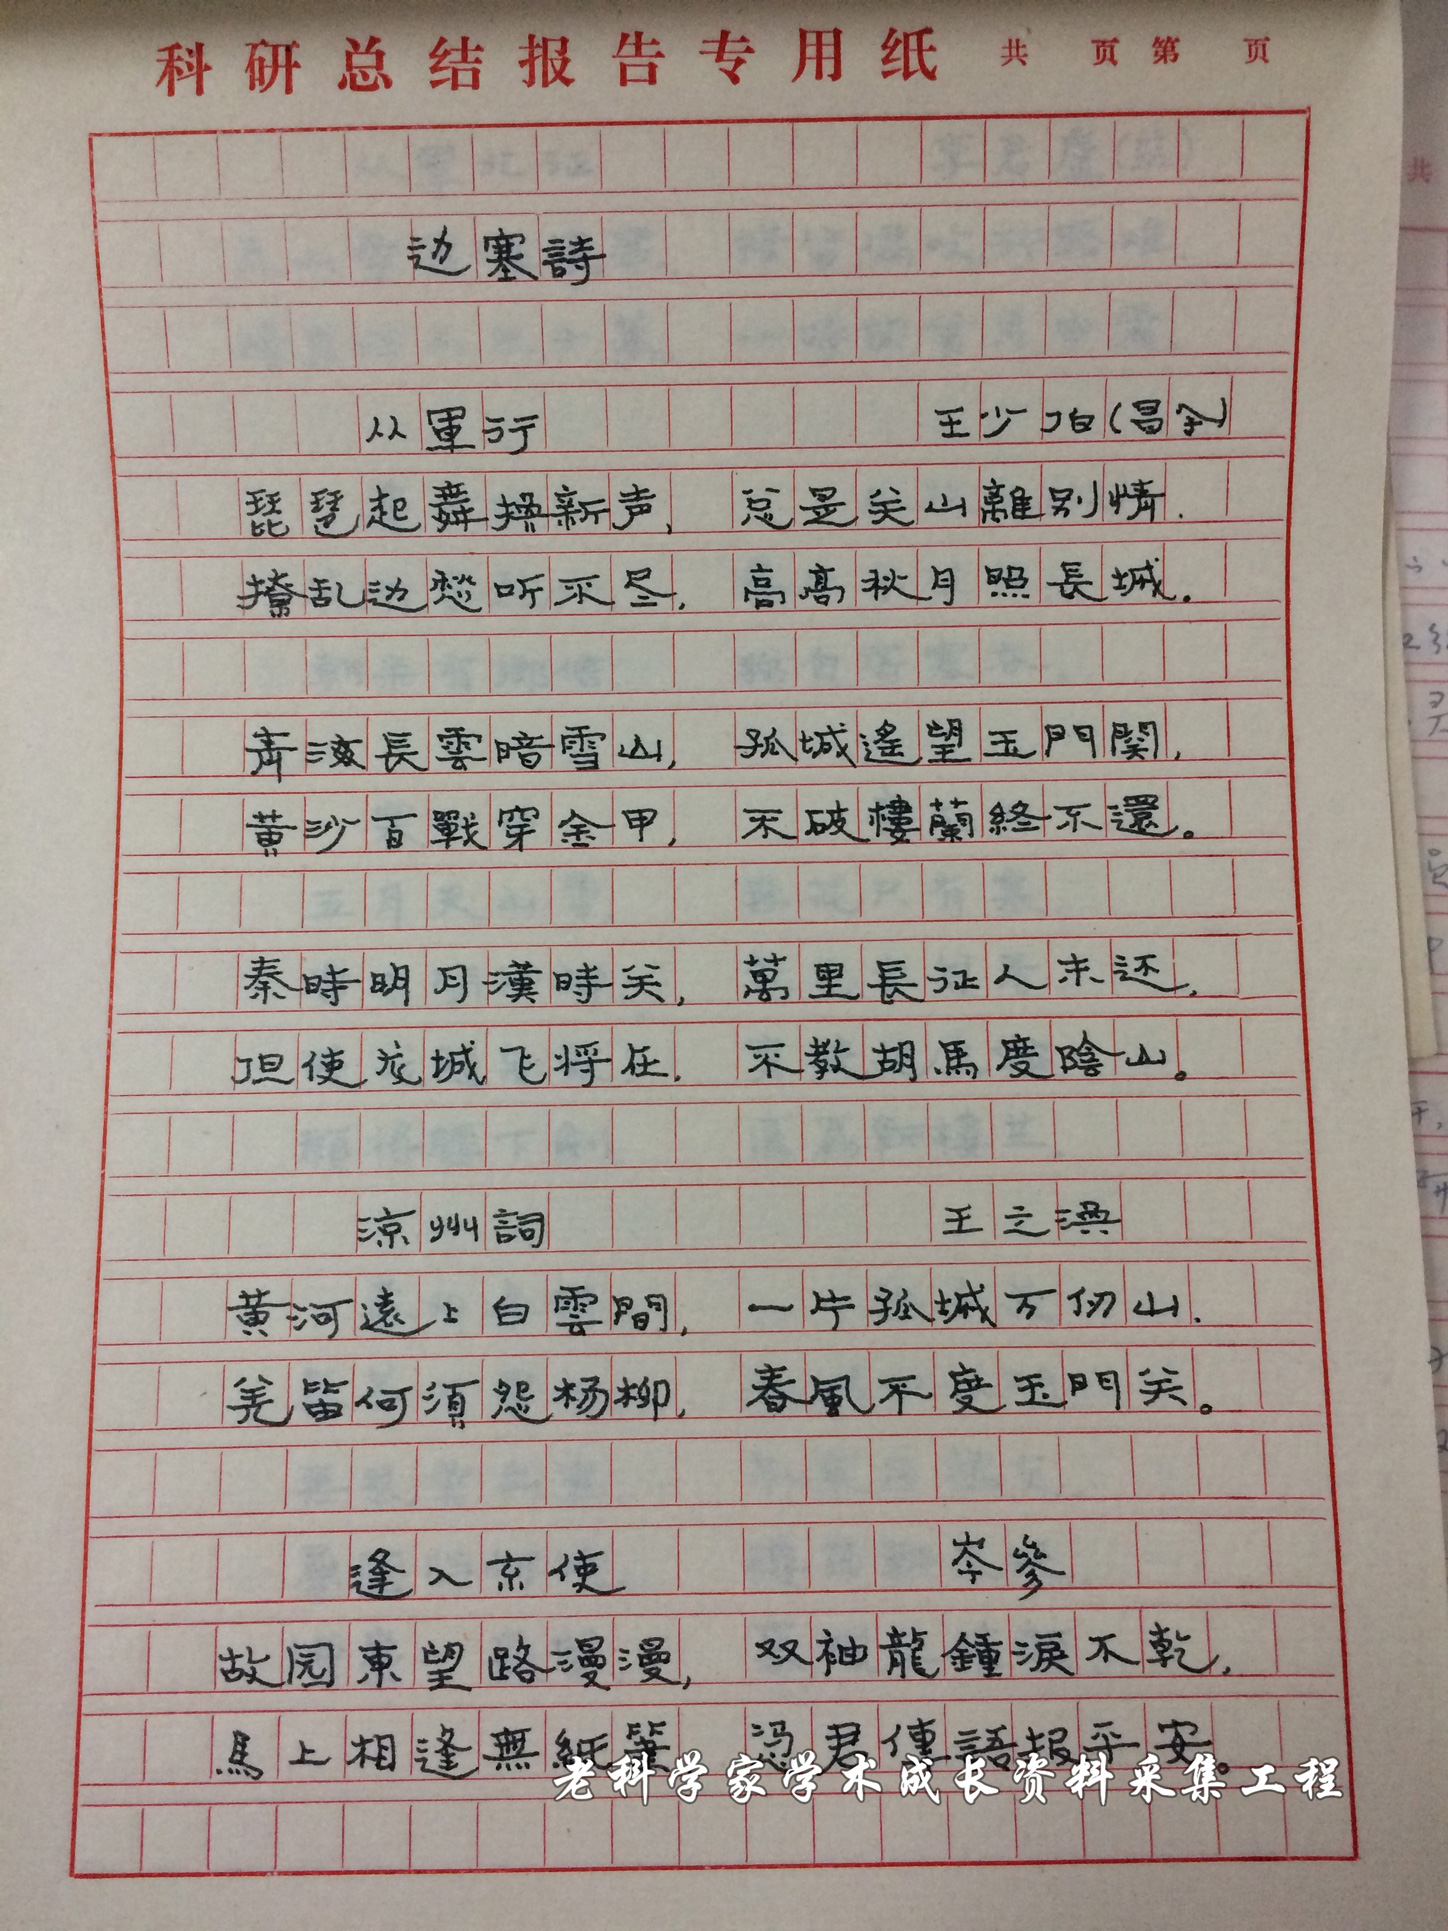 科研总结报告专用纸 共 页 第 页
边塞詩
从軍行 王少伯(昌令)
琵琶起舞换新声, 总是关山離别情.
撩乱边愁听不尽. 高高秋月照長城。
青海長雲暗雪山, 孤城遙望玉門関,
黄沙百戰穿金甲, 不破樓蘭終不還。
秦時明月漢時关, 萬里長征人未还,
但使龙城飞将在, 不教胡馬度陰山。
涼州詞 王之渙
黄河遠上白雲間, 一片孤城万仞山.
羌笛何須怨杨柳, 春風不度玉門关。
逢入京使 岑參
故园東望路漫漫, 双袖龍鍾淚不乾,
馬上相逢無紙筆 憑君傳語报平安。
老科学家学术成长资料采集工程